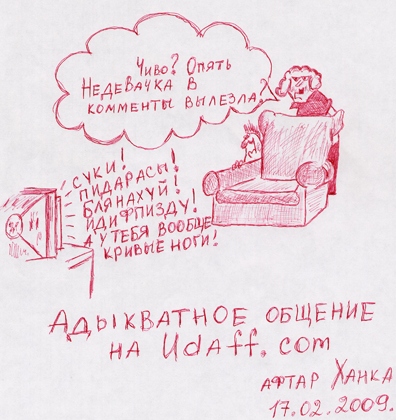 Чиво? Опять
Недевачка в
комменты вылезла?
Суки!
Пидарасы!
Блянахуй!
Идифпизду!
А у тебя вообще
кривые ноги!
Адыкватное общение
на Udaff.com
афтар Ханка
17.02.2009.